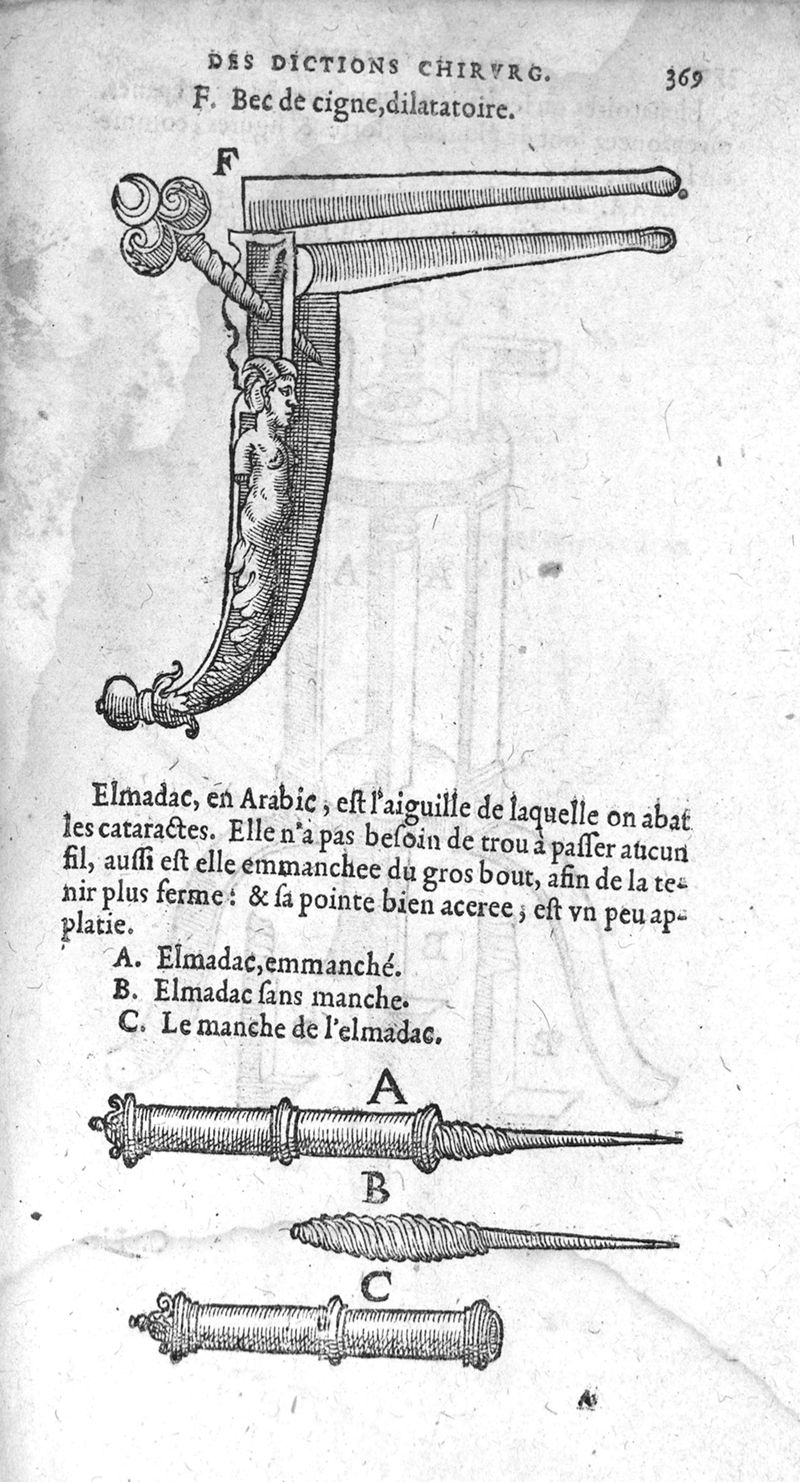 DES DICTIONS CHIRVRG. 369
F. Bec de cigne,dilatatoire.
F
Elmadac, en Arabic, eſt l'aiguille de laquelle on abat
les cataractes. Elle n'a pas beſoin de trou à paſſer aucun
fil, auſſi eſt elle emmanchee du gros bout, afin de la te-
nir plus ferme: & ſa pointe bien aceree, eſt vn peu ap-
platie.
A. Elmadac,emmanché.
B. Elmadac ſans manche.
C. Le manche de l'elmadac.
A
B
C
A